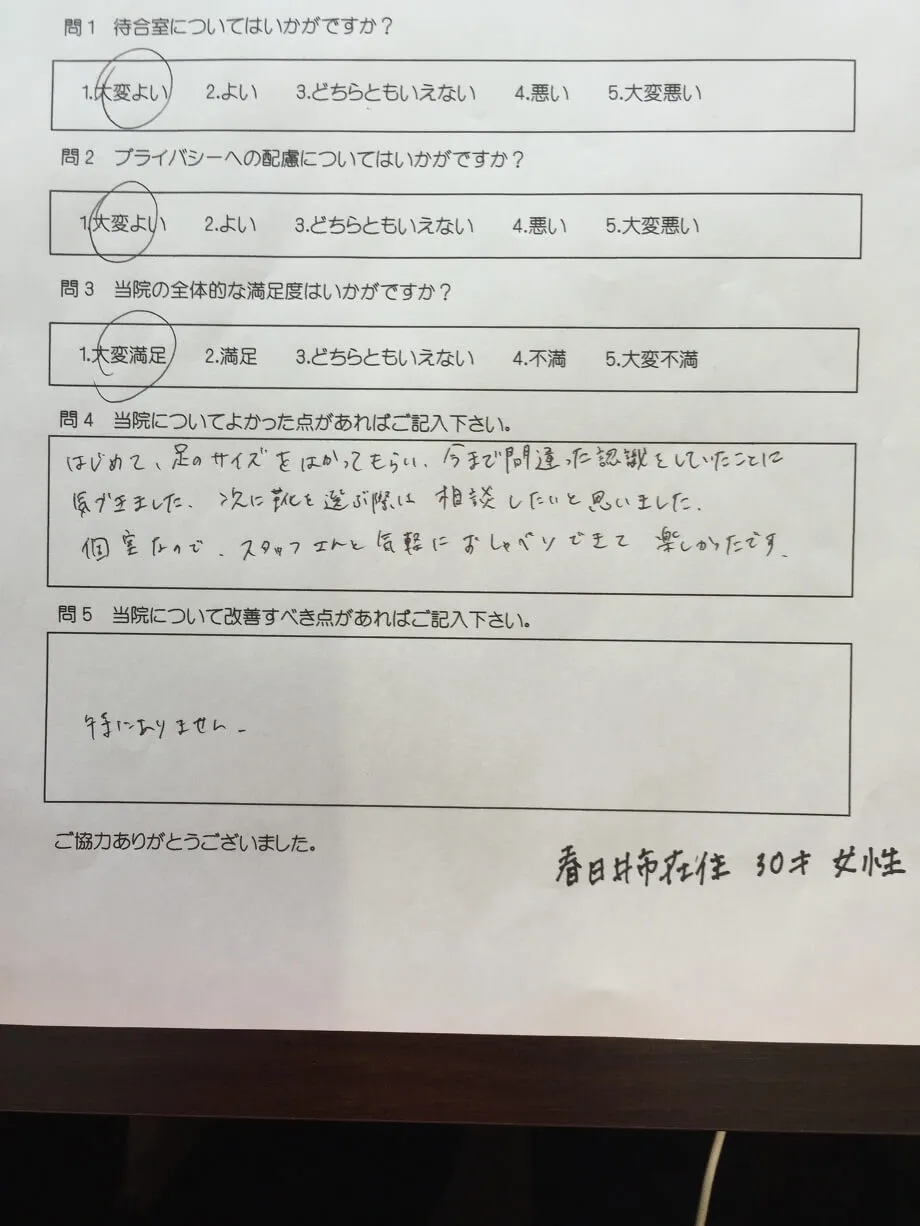 問1 待合室についてはいかがですか？
1.大変よい 2.よい 3.どちらともいえない 4.悪い 5.大変悪い
問2 プライバシーへの配慮についてはいかがですか？
1.大変よい 2.よい 3.どちらともいえない 4.悪い 5.大変悪い
問3 当院の全体的な満足度はいかがですか？
1.大変満足 2.満足 3.どちらともいえない 4.不満 5.大変不満
問4 当院についてよかった点があればご記入下さい。
はじめて、足のサイズをはかってもらい、今まで間違った認識をしていたことに
気づきました。次に靴を選ぶ際は相談したいと思いました。
個室なので、スタッフさんと気軽におしゃべりできて楽しかったです。
問5 当院について改善すべき点があればご記入下さい。
特にありません。
ご協力ありがとうございました。
春日井市在住 30才 女性